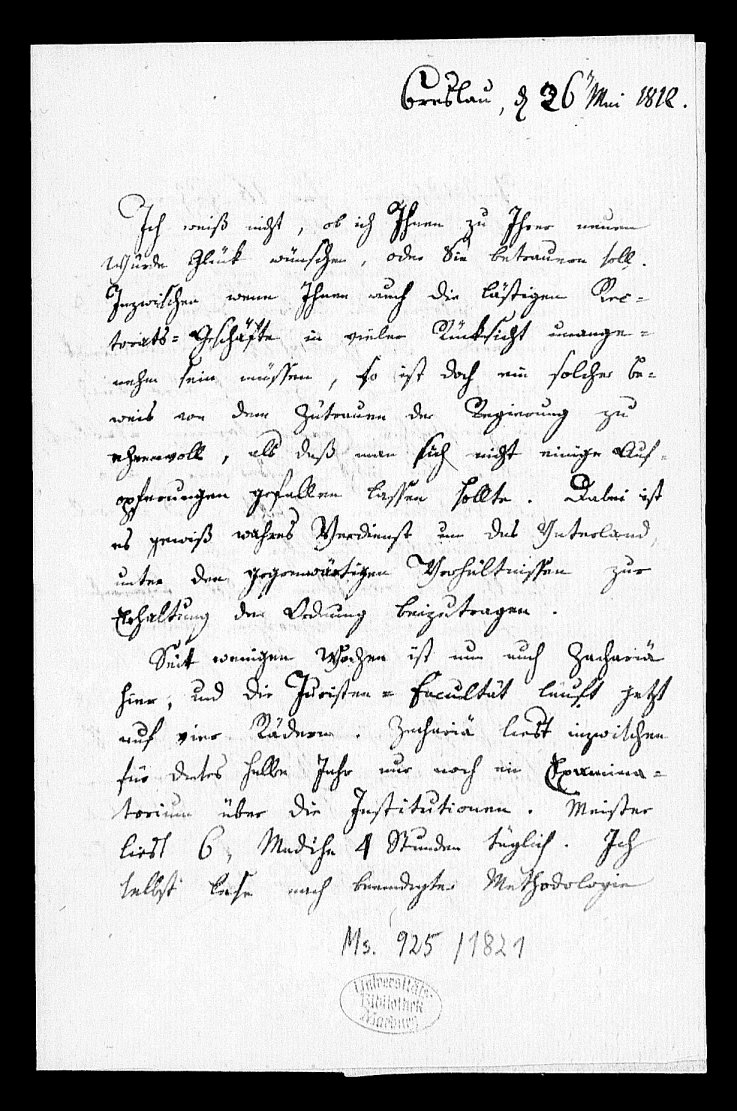 Breslau, d 26 Mai 1812.
Ich weiß nicht, ob ich Ihnen zu Ihrer neuen
Würde Glück wünschen, oder Sie betrauern soll.
Inzwischen wenn Ihnen auch die lästigen Rec-
torats-Geschäfte in vieler Rücksicht unange-
nehm sein müssen, so ist doch ein solcher Be-
weis von dem Zutrauen der Regierung zu
ehrenvoll, als daß man sich nicht einige Auf-
opferungen gefallen lassen sollte. Dabei ist
es gewiß wahres Verdienst um das Vaterland,
unter den gegenwärtigen Verhältnissen zur
Erhaltung der Ordnung beizutragen.
Seit wenigen Wochen ist nun auch Zachariä
hier, und die Juristen-Facultät läuft jetzt
auf vier Rädern. Zachariä liest inzwischen
für dieses halbe Jahr nur noch ein Examina-
torium über die Institutionen. Meister
liest 6, Madihn 4 Stunden täglich. Ich
selbst lese nach beendigter Methodologie
Ms. 925/1821
Universitäts-
Bibliothek
Marburg